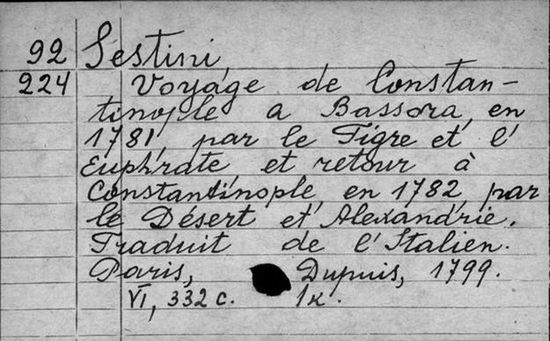 92 Sestini,
224 Voyage de Constan-
tinople a Bassora, en
1781, par le Tigre et l'
Euphrate, et retour à
Constantinople, en 1782, par
le Désert et Alexandrie.
Traduit de l'Italien.
Paris, Dupuis, 1799.
VI, 332 c. 1к.